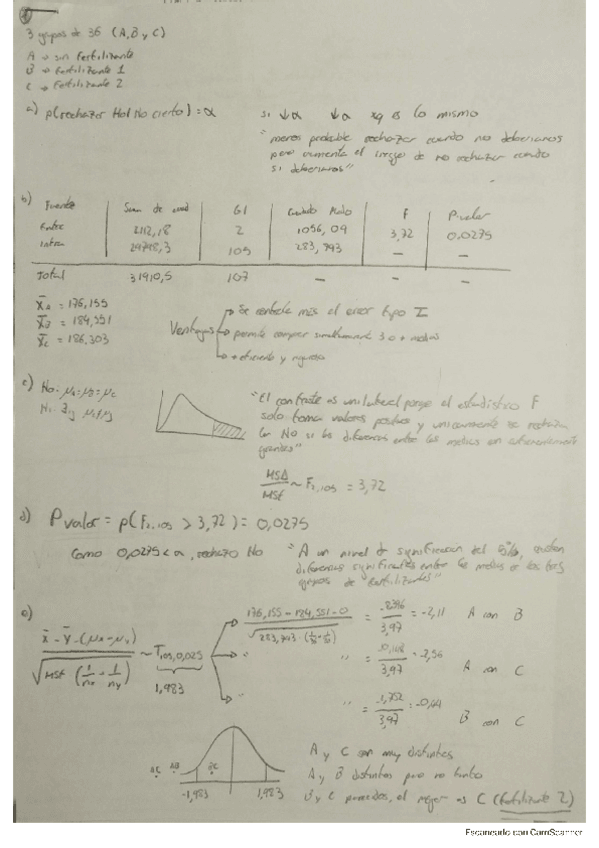 3 grupos de 36 (A, B y C)
A → sin fertilizante
B → Fertilizante 1
C → Fertilizante 2
a) p(rechazar Ho | Ho cierto) = α
si ↓α ↓α xq es lo mismo
"menos probable rechazar cuando no deberíamos
pero aumenta el riesgo de no rechazar cuando
si deberíamos"
b) Fuente | Suma de cuad | Gl | Cuadrado Medio | F | P-valor
Entre 2112,18 2 1056,09 3,72 0,0275
Intra 29798,3 105 283,793 – –
Total 31910,5 107 – – –
X̄A = 176,155
X̄B = 184,551
X̄C = 186,303
Ventajas
→ Se controla más el error tipo I
→ permite comparar simultáneamente 3 o + medias
→ + eficiente y
c) Ho: μA = μB = μC
H1: ∃ij μi ≠ μj
"El contraste es unilateral porque el estadístico F
solo toma valores positivos y únicamente se rechaza
Ho si las diferencias entre las medias son
grandes"
MSA/MSE ~ F2,105 = 3,72
d) P valor = p(F2,105 > 3,72) = 0,0275
Como 0,0275 < α, rechazo Ho
"A un nivel de significación del 5%, existen
diferencias significantes entre las medias de los tres
grupos de fertilizantes"
e) x̄ - ȳ - (μx - μy) / √MSE (1/nx + 1/ny) ~ T105, 0,025
1,983
→ 176,155 - 184,551 - 0 / √283,793 · (1/36 + 1/36) = -8,396/3,97 = -2,11 A con B
→ " " = -10,148/3,97 = -2,56 A con C
→ " " = -1,752/3,97 = -0,44 B con C
AC AB BC
-1,983 1,983
A y C son muy distintos
A y B distintos pero no tanto
B y C parecidos, el mejor es C (Fertilizante 2)
Escaneado con CamScanner